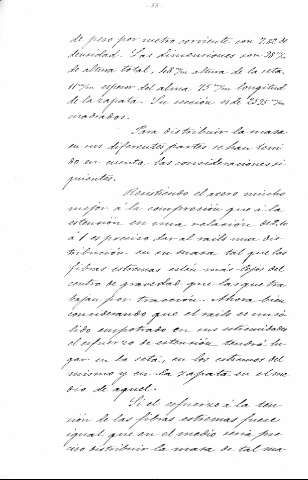 de peso por metro corriente con 7.82 de
densidad. Las dimensiones son 98 m/m
de altura total, 48 m/m altura de la seta
11 m/m espesor del alma 75 m/m longitud
de la zapata. Su sección es de m/m
cuadrados.
Para distribuir la masa
en sus diferentes partes se han teni
do en cuenta las consideraciones si
guientes.
Resistiendo el acero mucho
mejor á la compresión que á la
extensión en una relación de
á 1 es preciso dar al rails una dis
tribución en su masa tal que las
fibras extremas estén más lejos del
centro de gravedad que las que tra
bajan por tracción. Ahora bien
considerando que el rails es un só
lido empotrado en sus extremidades
el esfuerzo de extensión tendrá lu
gar en la seta, en los extremos del
mismo y en la zapata en el me
dio de aquel.
Si el esfuerzo á la ten
sión de las fibras extremas fuese
igual que en el medio sería pre
ciso distribuir la masa de tal ma